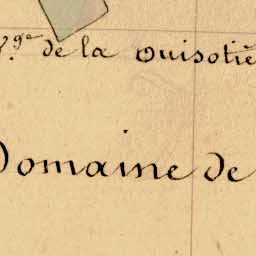 V.ge de la Ouisotiè
Domaine de